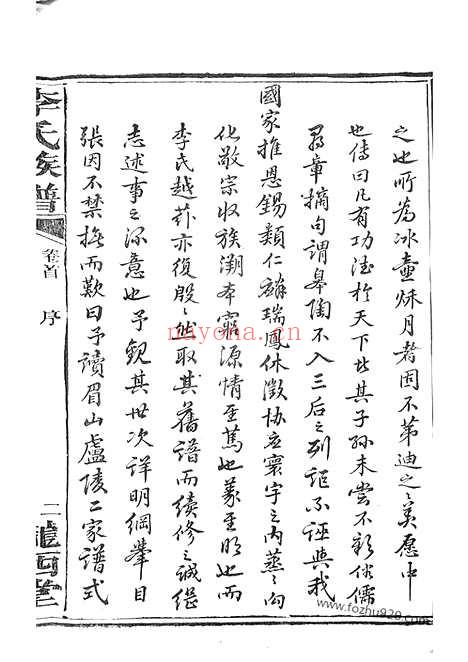 之也所為冰壺秋月者固不第迪之美愿中
也傳曰凡有功法於天下者其子孫未嘗不彰俗儒
尋章摘句謂皋陶不入三后之列詎不誣與我
國家推恩錫類仁麟瑞鳳休徵協應寰宇之內蒸〻向
化敬宗收族溯本窮源情至篤也義至明也而
李氏越荪亦復殷〻然取其舊譜而續修之誠繼
志述事之深意也予觀其世次詳明綱舉目
張因不禁撫而歎曰予讀眉山盧陵二家譜式
李氏族譜
卷首
序
二
龍西堂
nayona.cn
www.fozhu920.com